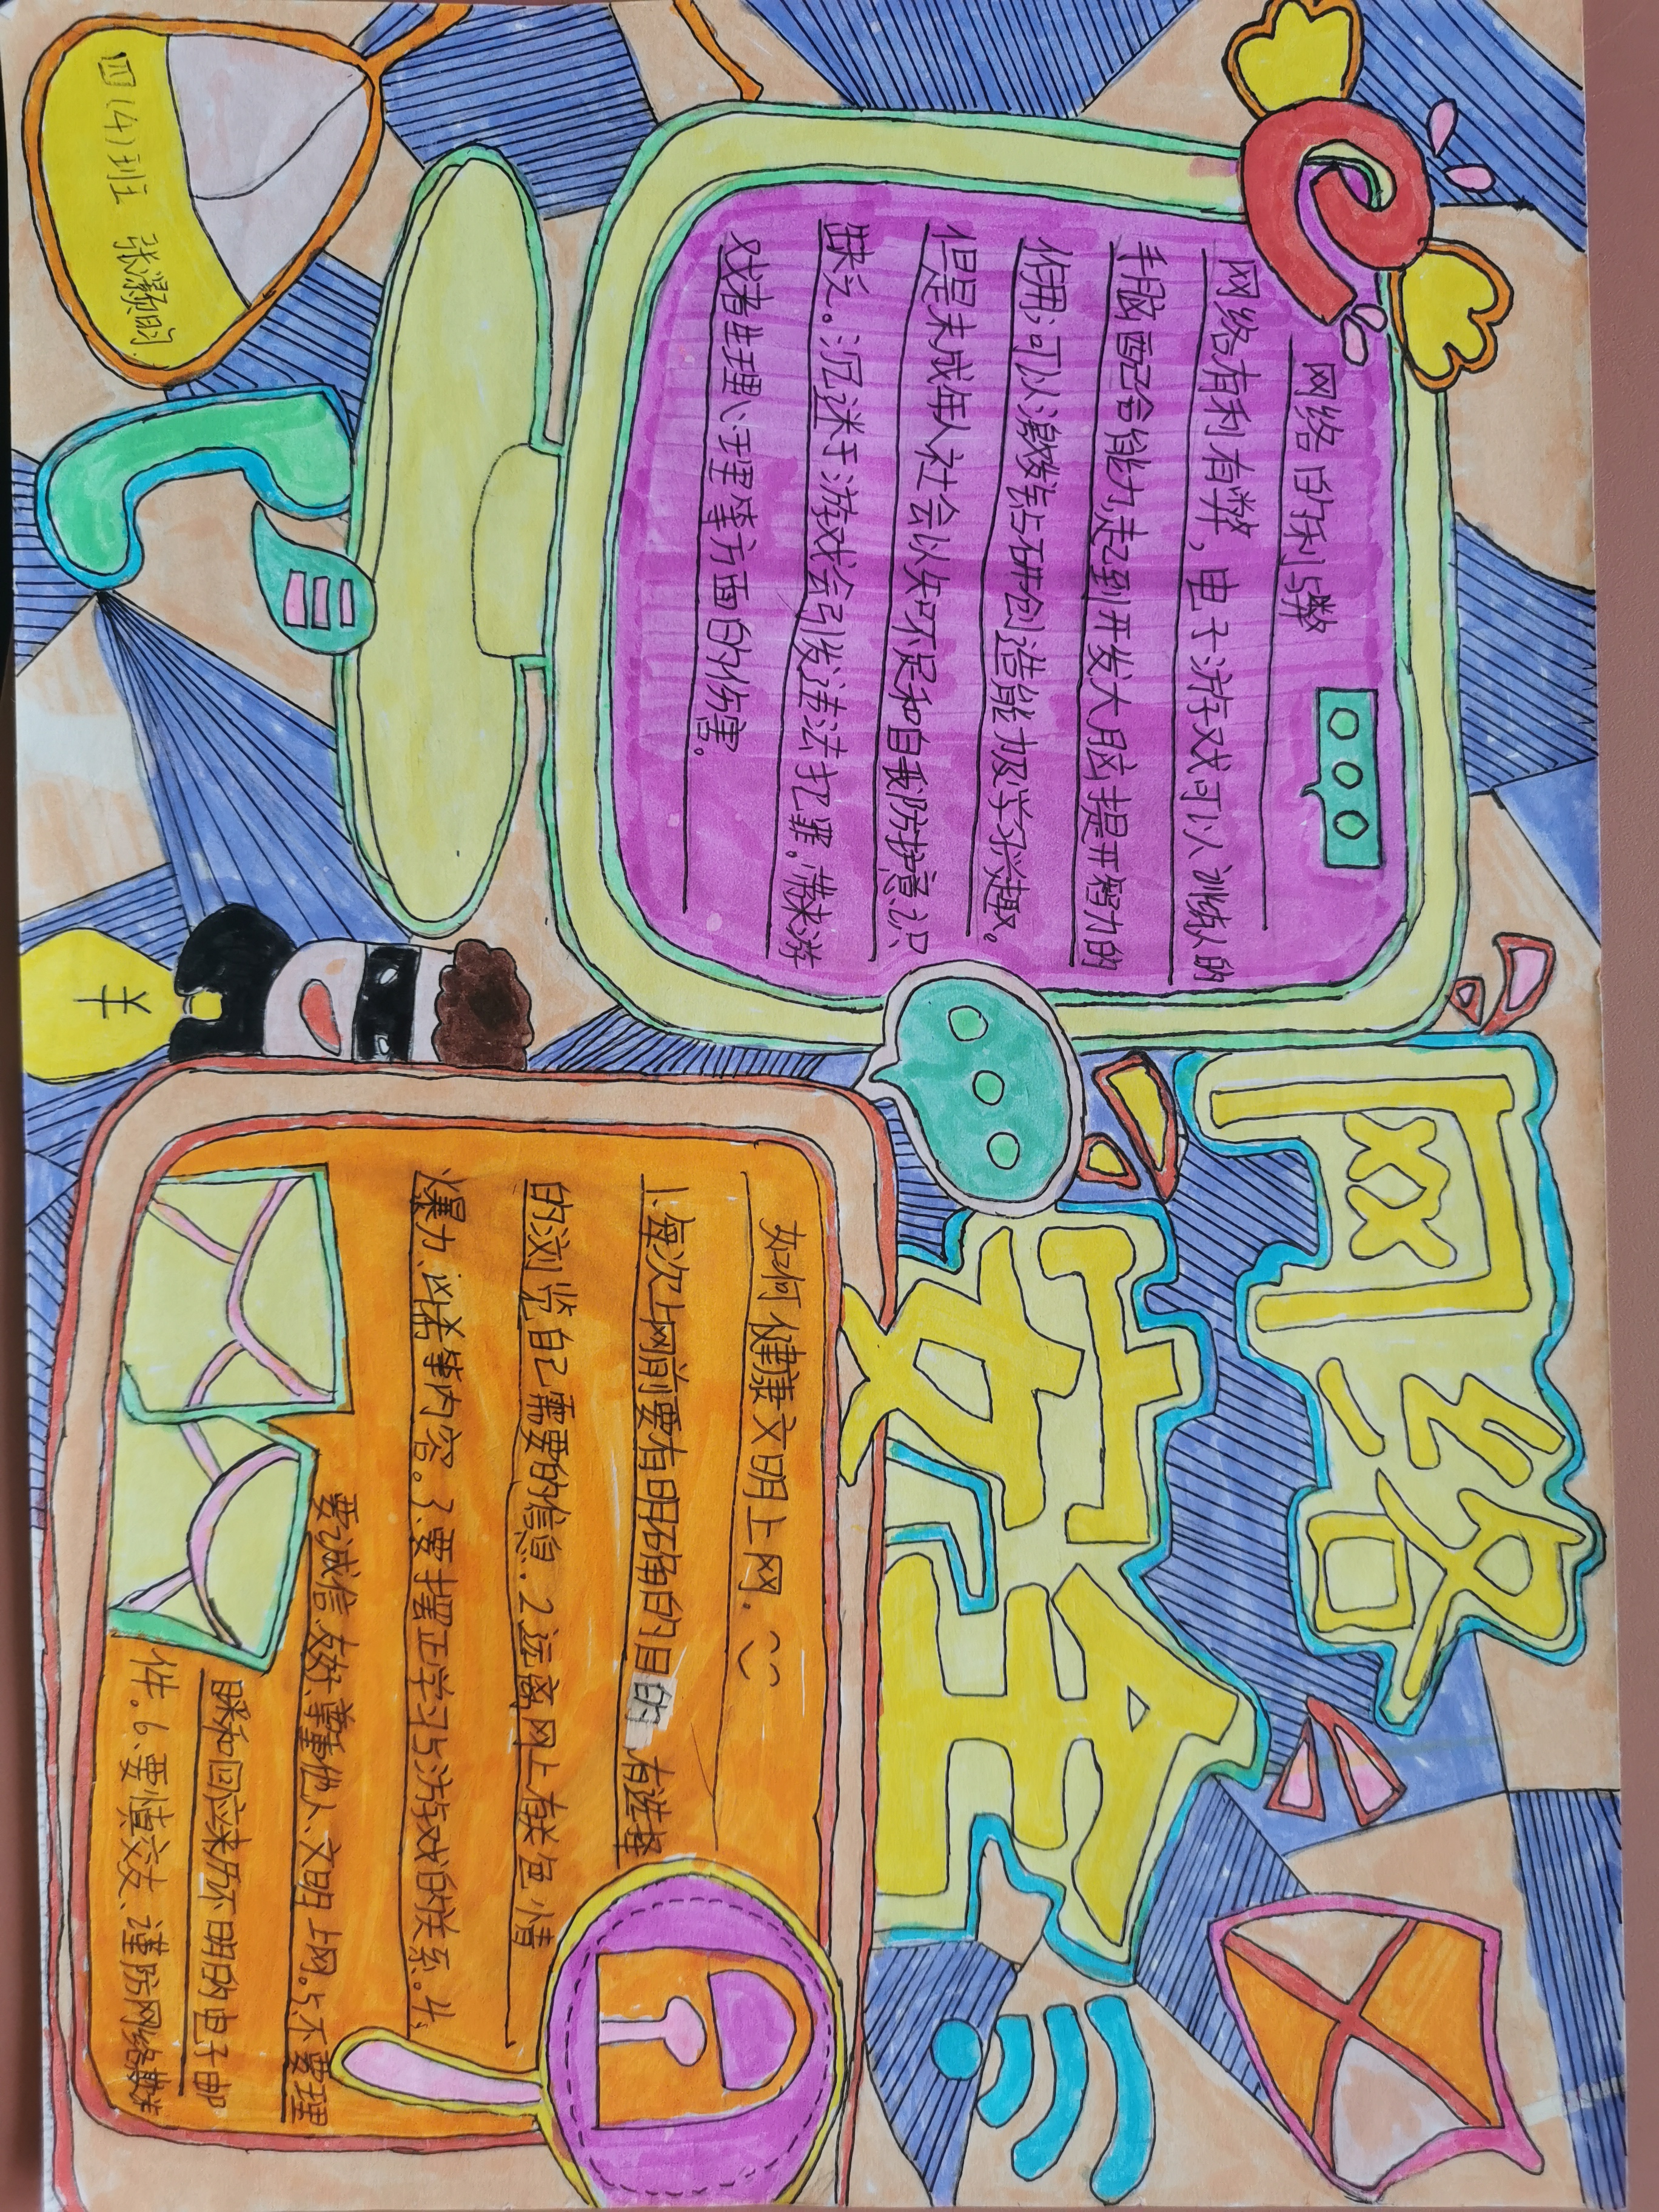 网络安全
网络的利与弊
网络有利有弊，电子游戏可以训练人的
手脑配合能力，起到开发大脑提开智力的
作用；可以激发钻研创造能力极学习兴趣。
但是未成年人社会认知不足和自我防护意识
缺乏。沉迷于游戏会引发违法犯罪。带来游
戏者生理心理等方面的伤害。
如何健康文明上网．
1.每次上网前要有明确的目的 有选择
的浏览自己需要的信息．2.远离网上存色情
爆力、凶杀等内容。3.要摆正学习与游戏的关系。4.
要诚信友好、尊重他人、文明上网。5.不要理
睬和回应来历不明的电子邮
件。6.要慎交友、谨防网络欺诈
四（4）班